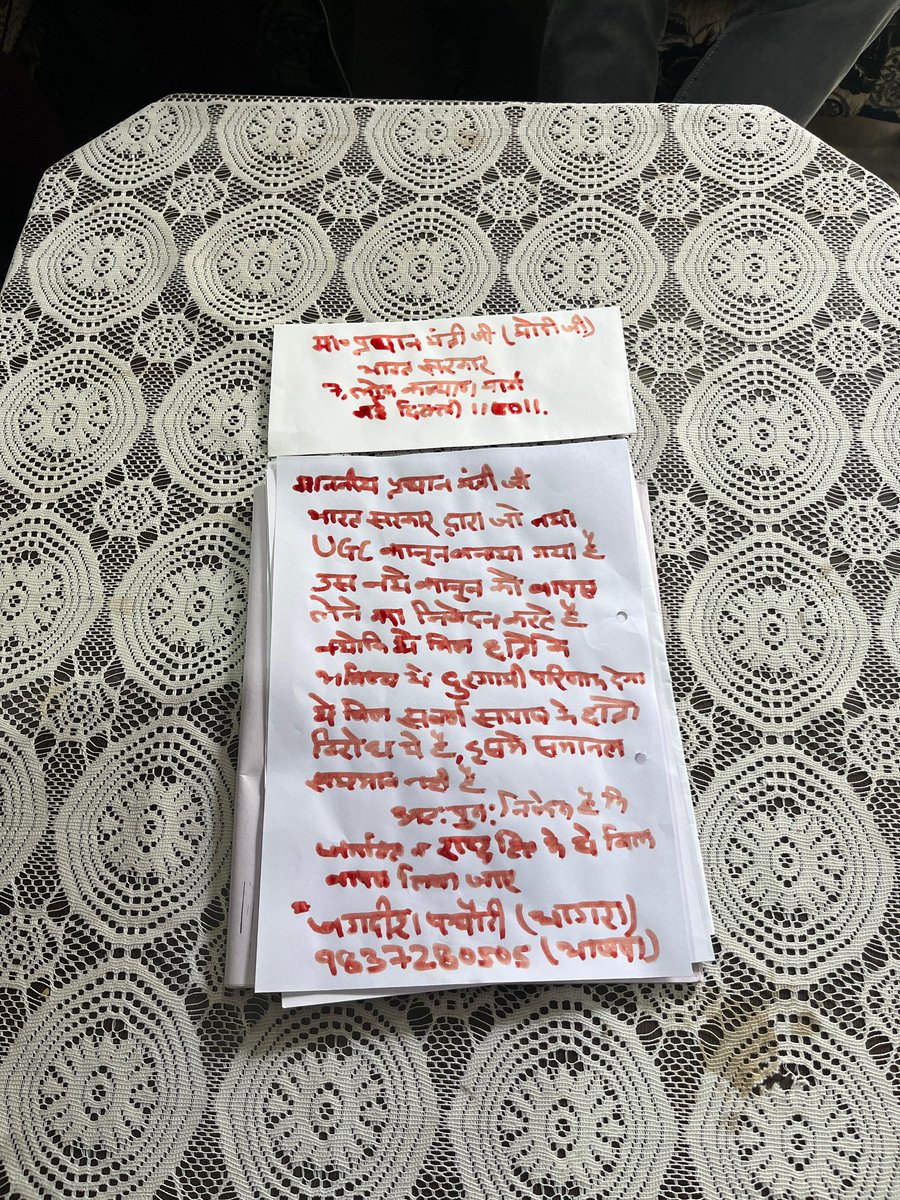 मा० प्रधान मंत्री जी (मोदी जी)
भारत सरकार
7, लोक कल्याण मार्ग
नई दिल्ली 110011.
माननीय प्रधान मंत्री जी
भारत सरकार द्वारा जो नया
UGC कानून बनाया गया है
उस नये कानून को वापस
लेने का निवेदन करते हैं
क्योकि ये बिल
भविष्य में दुरगामी परिणाम देगा
ये बिल सवर्ण समाज के
विरोध में है, इसमें
समभाव नहीं है
अतः पुनः निवेदन है कि
व राष्ट्र हित में ये बिल
वापस लिया जाए
जगदीश (आगरा)
9837280505 (भाजपा)